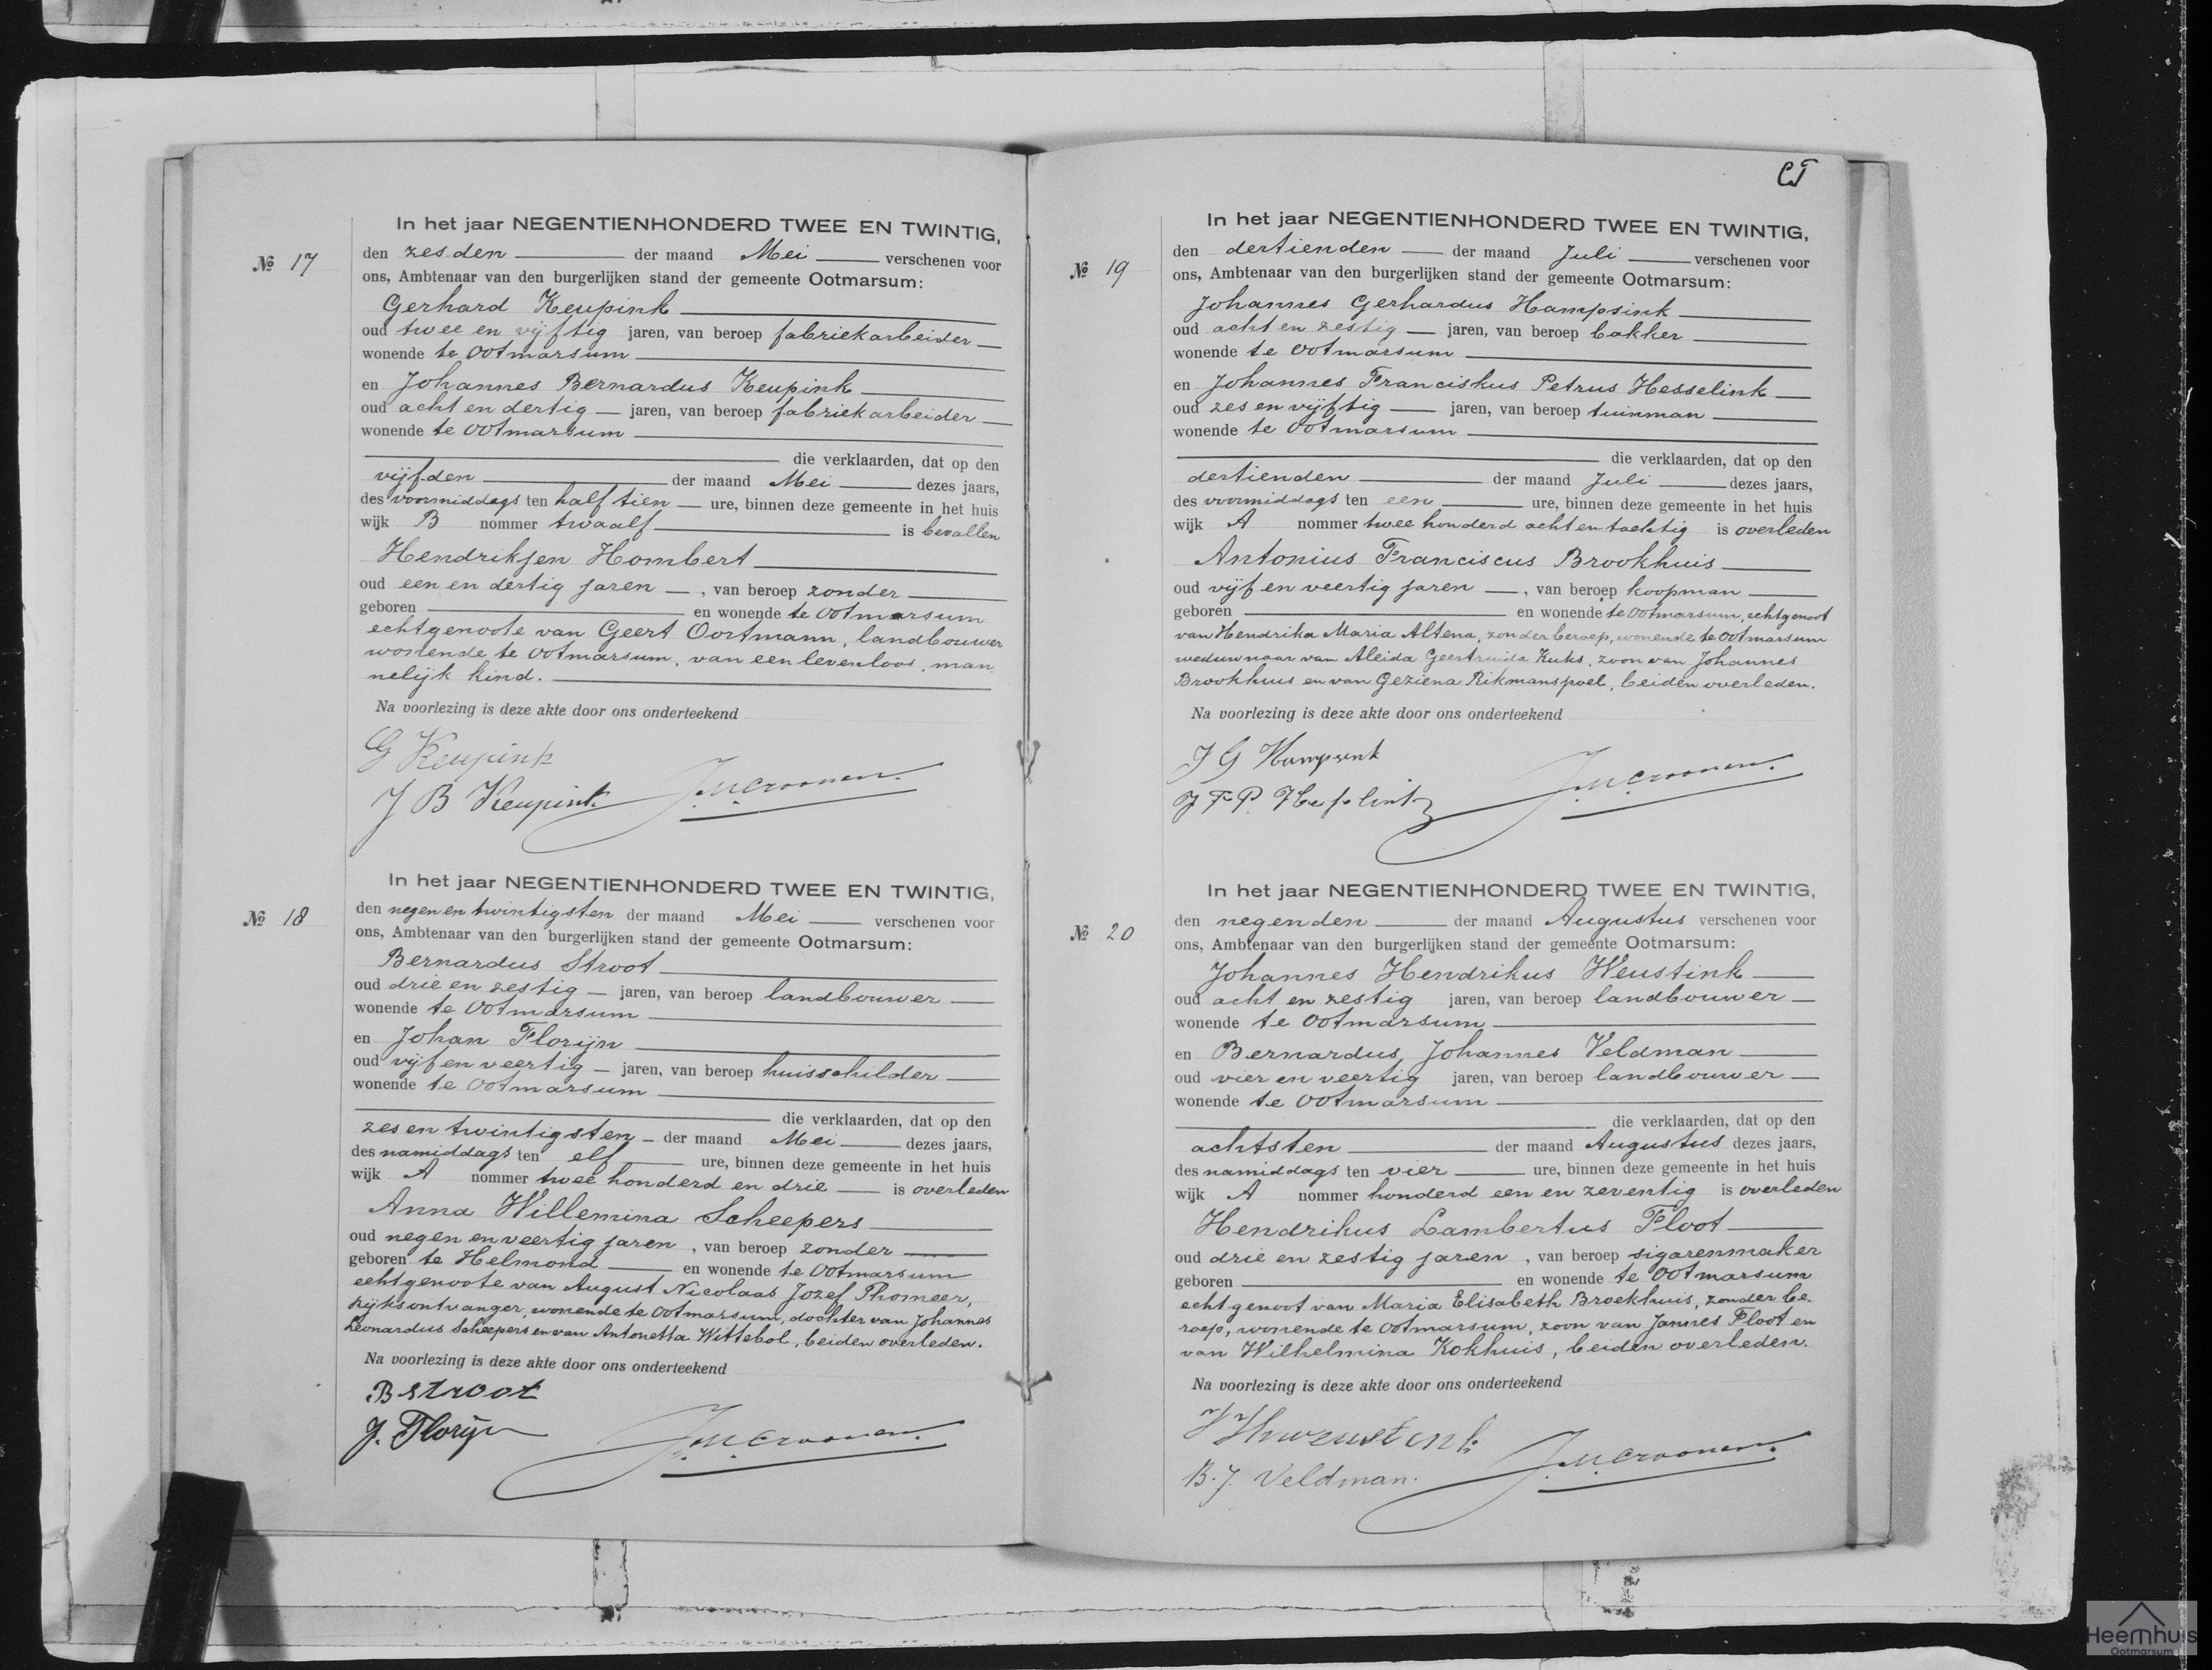 In het jaar NEGENTIENHONDERD TWEE EN TWINTIG,
№ 17
den zesden der maand Mei verschenen voor
ons, Ambtenaar van den burgerlijken stand der gemeente Ootmarsum:
Gerhard Keupink
oud twee en vijftig jaren, van beroep fabriekarbeider
wonende te Ootmarsum
en Johannes Bernardus Keupink
oud acht en dertig jaren, van beroep fabriekarbeider
wonende te Ootmarsum
die verklaarden, dat op den
vijfden der maand Mei dezes jaars,
des voormiddags ten half tien ure, binnen deze gemeente in het huis
wijk B nommer twaalf is bevallen
Hendrikjen Hombert
oud een en dertig jaren, van beroep zonder
geboren en wonende te Ootmarsum
echtgenoote van Geert Oortmann, landbouwer
wonende te Ootmarsum, van een levenloos, man
nelijk kind.
Na voorlezing is deze akte door ons onderteekend
G Keupink
J B Keupink J. M. Croonen.
In het jaar NEGENTIENHONDERD TWEE EN TWINTIG,
№ 18
den negen en twintigsten der maand Mei verschenen voor
ons, Ambtenaar van den burgerlijken stand der gemeente Ootmarsum:
Bernardus Stroot
oud drie en zestig jaren, van beroep landbouwer
wonende te Ootmarsum
en Johan Florijn
oud vijf en veertig jaren, van beroep huisschilder
wonende te Ootmarsum
die verklaarden, dat op den
zes en twintigsten der maand Mei dezes jaars,
des namiddags ten elf ure, binnen deze gemeente in het huis
wijk A nommer twee honderd en drie is overleden
Anna Willemina Scheepers
oud negen en veertig jaren, van beroep zonder
geboren te Helmond en wonende te Ootmarsum
echtgenoote van August Nicolaas Jozef Thomeer,
rijksontvanger, wonende te Ootmarsum, dochter van Johannes
Leonardus Scheepers en van Antonetta Wittebol, beiden overleden.
Na voorlezing is deze akte door ons onderteekend
B Stroot
J. Florijn J. M. Croonen.
In het jaar NEGENTIENHONDERD TWEE EN TWINTIG,
№ 19
den dertienden der maand Juli verschenen voor
ons, Ambtenaar van den burgerlijken stand der gemeente Ootmarsum:
Johannes Gerhardus Hampsink
oud acht en zestig jaren, van beroep bakker
wonende te Ootmarsum
en Johannes Franciskus Petrus Hesselink
oud zes en vijftig jaren, van beroep tuinman
wonende te Ootmarsum
die verklaarden, dat op den
dertienden der maand Juli dezes jaars,
des voormiddags ten een ure, binnen deze gemeente in het huis
wijk A nommer twee honderd acht en tachtig is overleden
Antonius Franciscus Brookhuis
oud vijf en veertig jaren, van beroep koopman
geboren en wonende te Ootmarsum, echtgenoot
van Hendrika Maria Altena, zonder beroep, wonende te Ootmarsum
weduwnaar van Aleida Geertruida Kuks, zoon van Johannes
Brookhuis en van Geziena Rikmanspoel, beiden overleden.
Na voorlezing is deze akte door ons onderteekend
J G Hampsink
J F P. Hesselink J. M. Croonen.
In het jaar NEGENTIENHONDERD TWEE EN TWINTIG,
№ 20
den negenden der maand Augustus verschenen voor
ons, Ambtenaar van den burgerlijken stand der gemeente Ootmarsum:
Johannes Hendrikus Weustink
oud acht en zestig jaren, van beroep landbouwer
wonende te Ootmarsum
en Bernardus Johannes Veldman
oud vier en veertig jaren, van beroep landbouwer
wonende te Ootmarsum
die verklaarden, dat op den
achtsten der maand Augustus dezes jaars,
des namiddags ten vier ure, binnen deze gemeente in het huis
wijk A nommer honderd een en zeventig is overleden
Hendrikus Lambertus Floot
oud drie en zestig jaren, van beroep sigarenmaker
geboren en wonende te Ootmarsum
echtgenoot van Maria Elisabeth Broekhuis, zonder be-
roep, wonende te Ootmarsum, zoon van Jannes Floot en
van Wilhelmina Kokhuis, beiden overleden.
Na voorlezing is deze akte door ons onderteekend
B. J. Veldman. J. M. Croonen.
Heemhuis
Ootmarsum